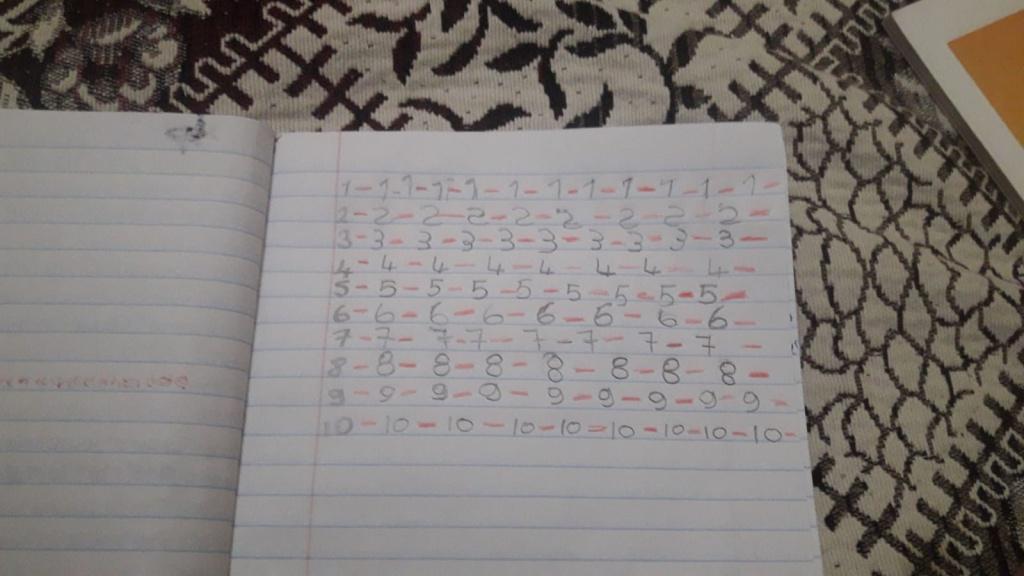 1-1-1-1-1-1-1-1-1-1-1-1-
2-2-2-2-2-2-2-2-2-
3-3-3-3-3-3-3-3-3-3-
4-4-4-4-4-4-4-4-
5-5-5-5-5-5-5-5-5-
6-6-6-6-6-6-6-6-
7-7-7-7-7-7-7-7-
8-8-8-8-8-8-8-8-
9-9-9-9-9-9-9-9-9-
10-10-10-10-10=10-10-10-10-